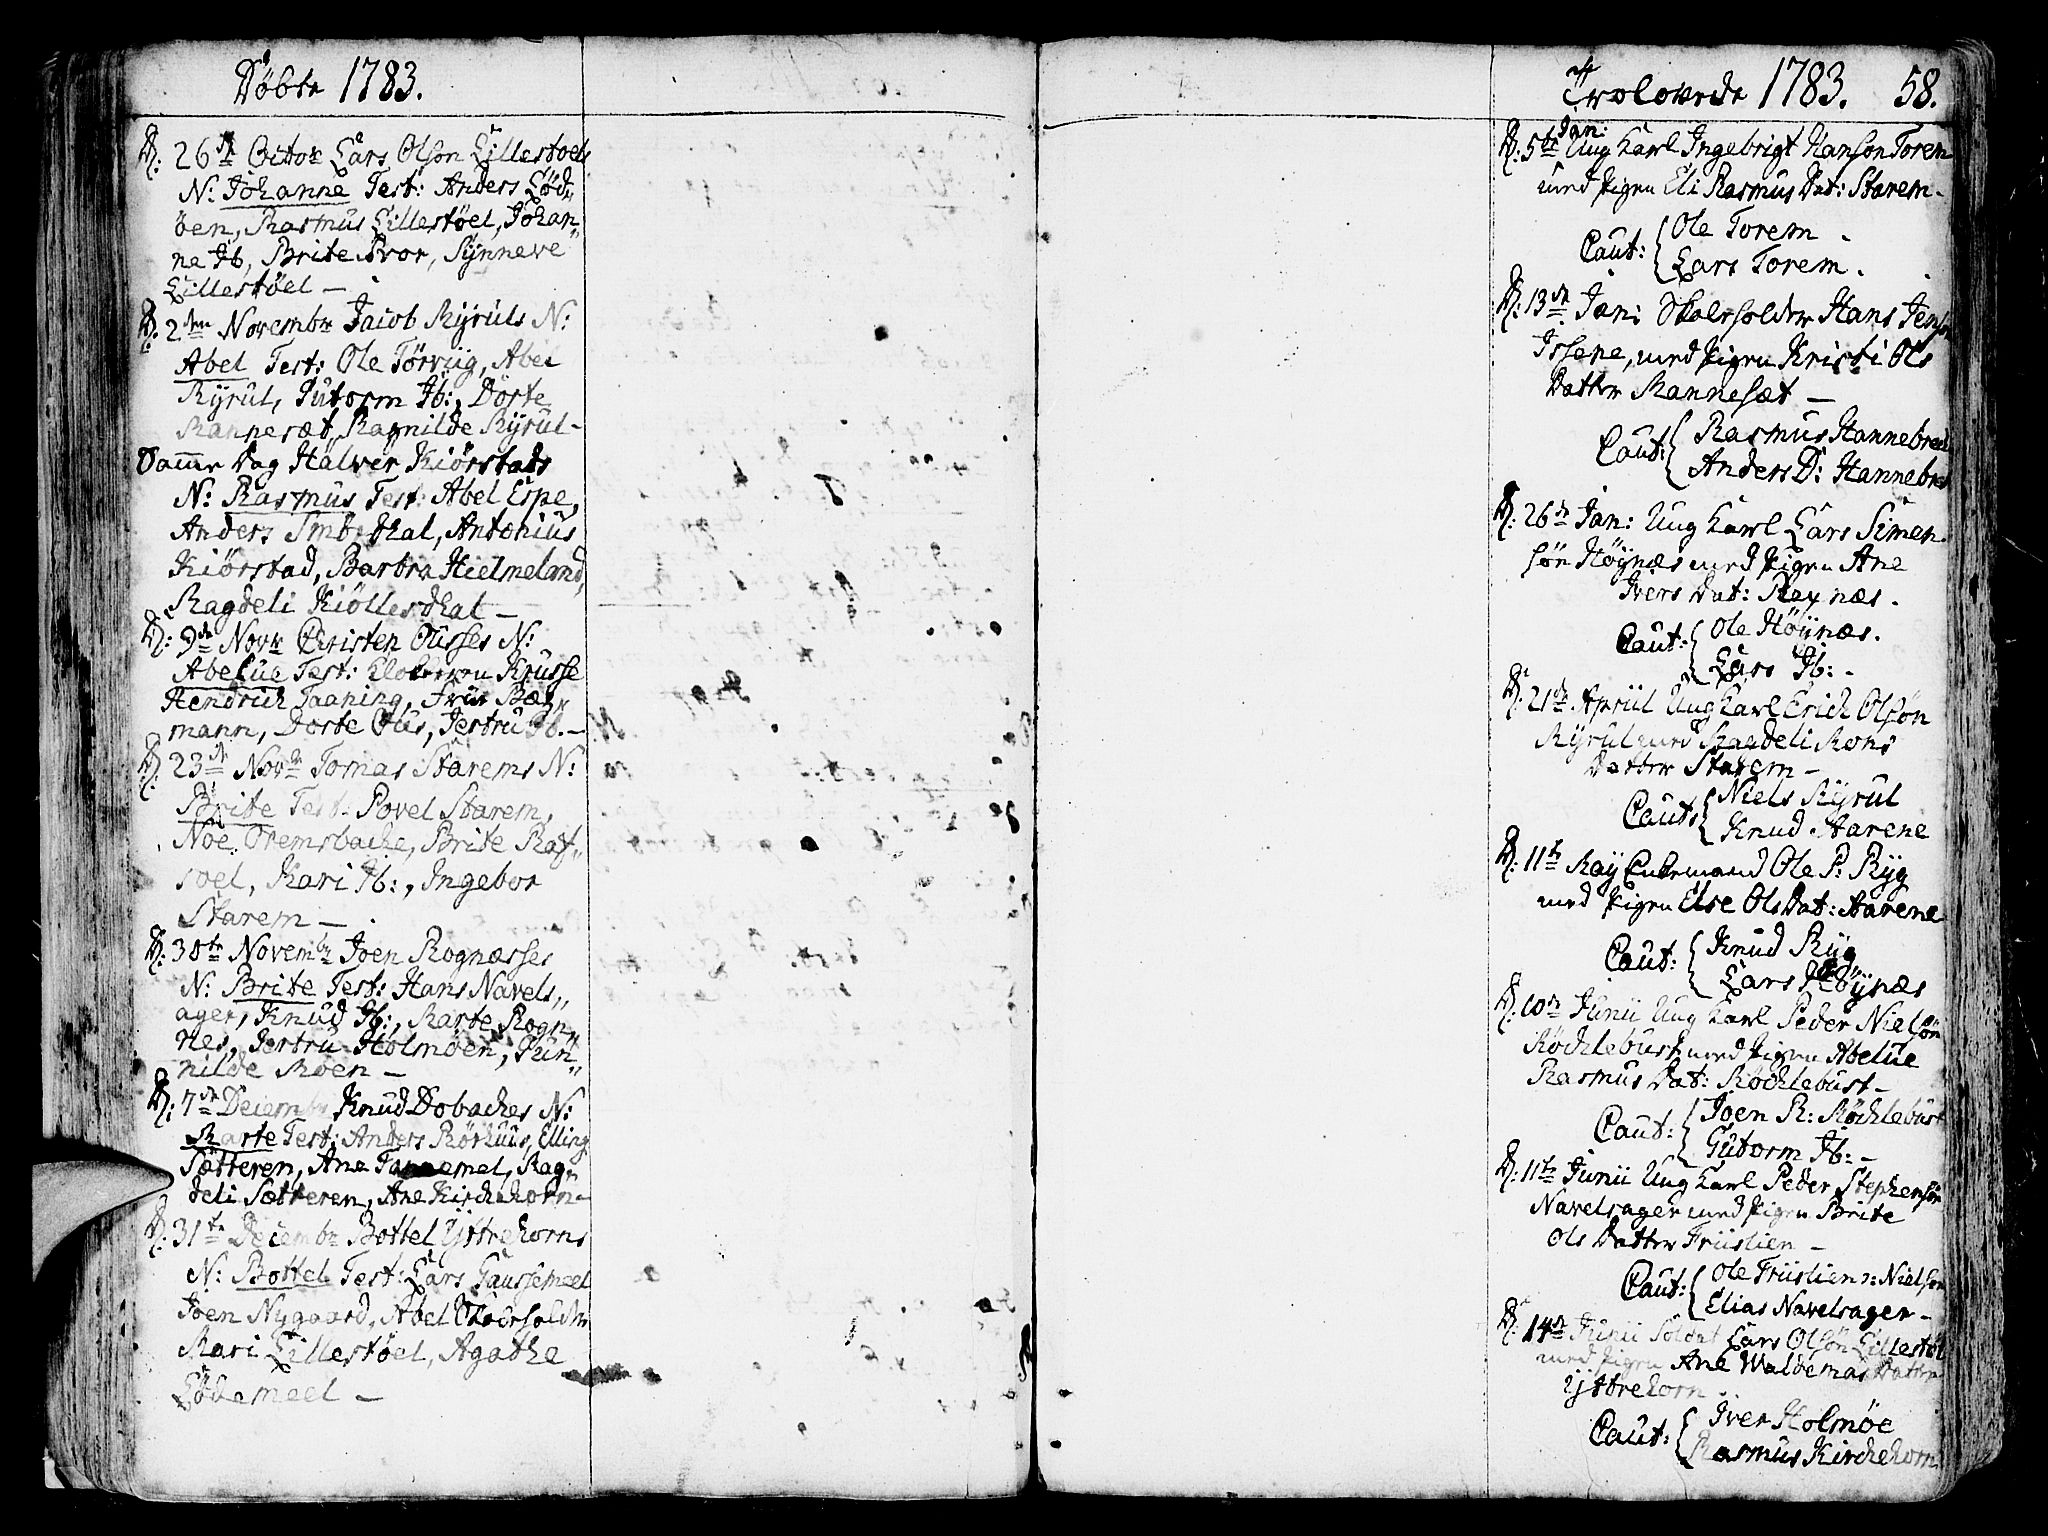 Døbte 1783.
D: 26de Octobr Lars Olson Lillestoels
N: Johanne Test: Anders Löd„
öen, Rasmus Lillestöel, Johan„
ne Ib, Brite Svor, Synneve
Lillestöel —
D: 2den Novembr Jacob Ryruls N:
Abel Test: Ole Törvüg, Abel
Ryrul, Gutorm Ib:, Dorte
Rannesæt, Ragnilde Ryrul –
Samme Dag Halver Kiörstads
N: Rasmus Test: Abel Espe,
Anders dhal, Antonius
Kiörstad, Barbra Hielmeland,
Ragdeli Kiöllesdhal —
D: 9de Novr Christen Ousses N:
Abelue Test: Klokeren Krusse
Hendrich Taaning,
mann, Dorte Ous, Jertru Ib. –
D: 23de Novbr Tomas Starems N:
Brite Test: Povel Starem,
Noe Oremsbache, Brite Rat„
soel, Kari Ib:, Ingebor
Starem —
D: 30te Novembr Joen Rognæsses
N: Brite Test: Hans Navels„
ager, Knud Ib:, Marte Rogn„
nes, Jertru Holmöen, Gun„
nilde Moen —
D: 7de Decembr Knud Dobaches N:
Marte Test: Anders Rörhuus, Elling
Sætteren, Ane Tannemel, Rag„
deli Sætteren, Ane Kirchehorn –
D: 31te Decembr Bottel Yttrehorns
N: Bottel Test: Lars Gaussemeel
Joen Nygaard, Abel Skoelholder
Mari Lillestöel, Agathe
Lödemeel —
Trolovede 1783. 58.
D: 5te Jan: Ung Karl Ingebrigt Hanson Torem
med Pigen Eli Rasmus Dat: Starem –
Caut: { Ole Torem –
Lars Torem .
D: 13de Jan: Skoelholder Hans Jenson
Issene, med Pigen Kristi Ols
Datter Rannesæt —
Caut: { Rasmus Hannebreck
Anders D: Hannebreck
D: 26de Jan: Ung Karl Lars Simen„
sön Höynæs med Pigen Ane
Ivers Dat: Raynæs .
Caut: { Ole Höynæs .
Lars Ib: –
D: 21de Apriil Ung Karl Erich Olsön
Ryrul med Magdeli Mons
Datter Starem –
Caut: { Niels Ryrul
Knud Aarene
D: 11te May Enkemand Ole P: Ryg
med Pigen Else Ols Dat: Aarene
Caut: { Knud Ryg
Lars Höynæs
D: 10de Junii Ung Karl Peder Nielsön
Röchlebust med Pigen Abelue
Rasmus Dat: Röchlebust –
Caut: { Joen R: Röchlebust
Gutorm Ib: –
D: 11te Junii Ung Karl Peder Stephensön
Navelsager med Pigen Brite
Ols Datter Friislien –
Caut: { Ole Friislien : Nielson
Elias Navelsager –
D: 14de Junii Soldat Lars Olsön Lillestöl
med Pigen Ane Waldemas Datter
Yttrehorn
Caut: { Iver Holmöe
Rasmus Kirchehorn